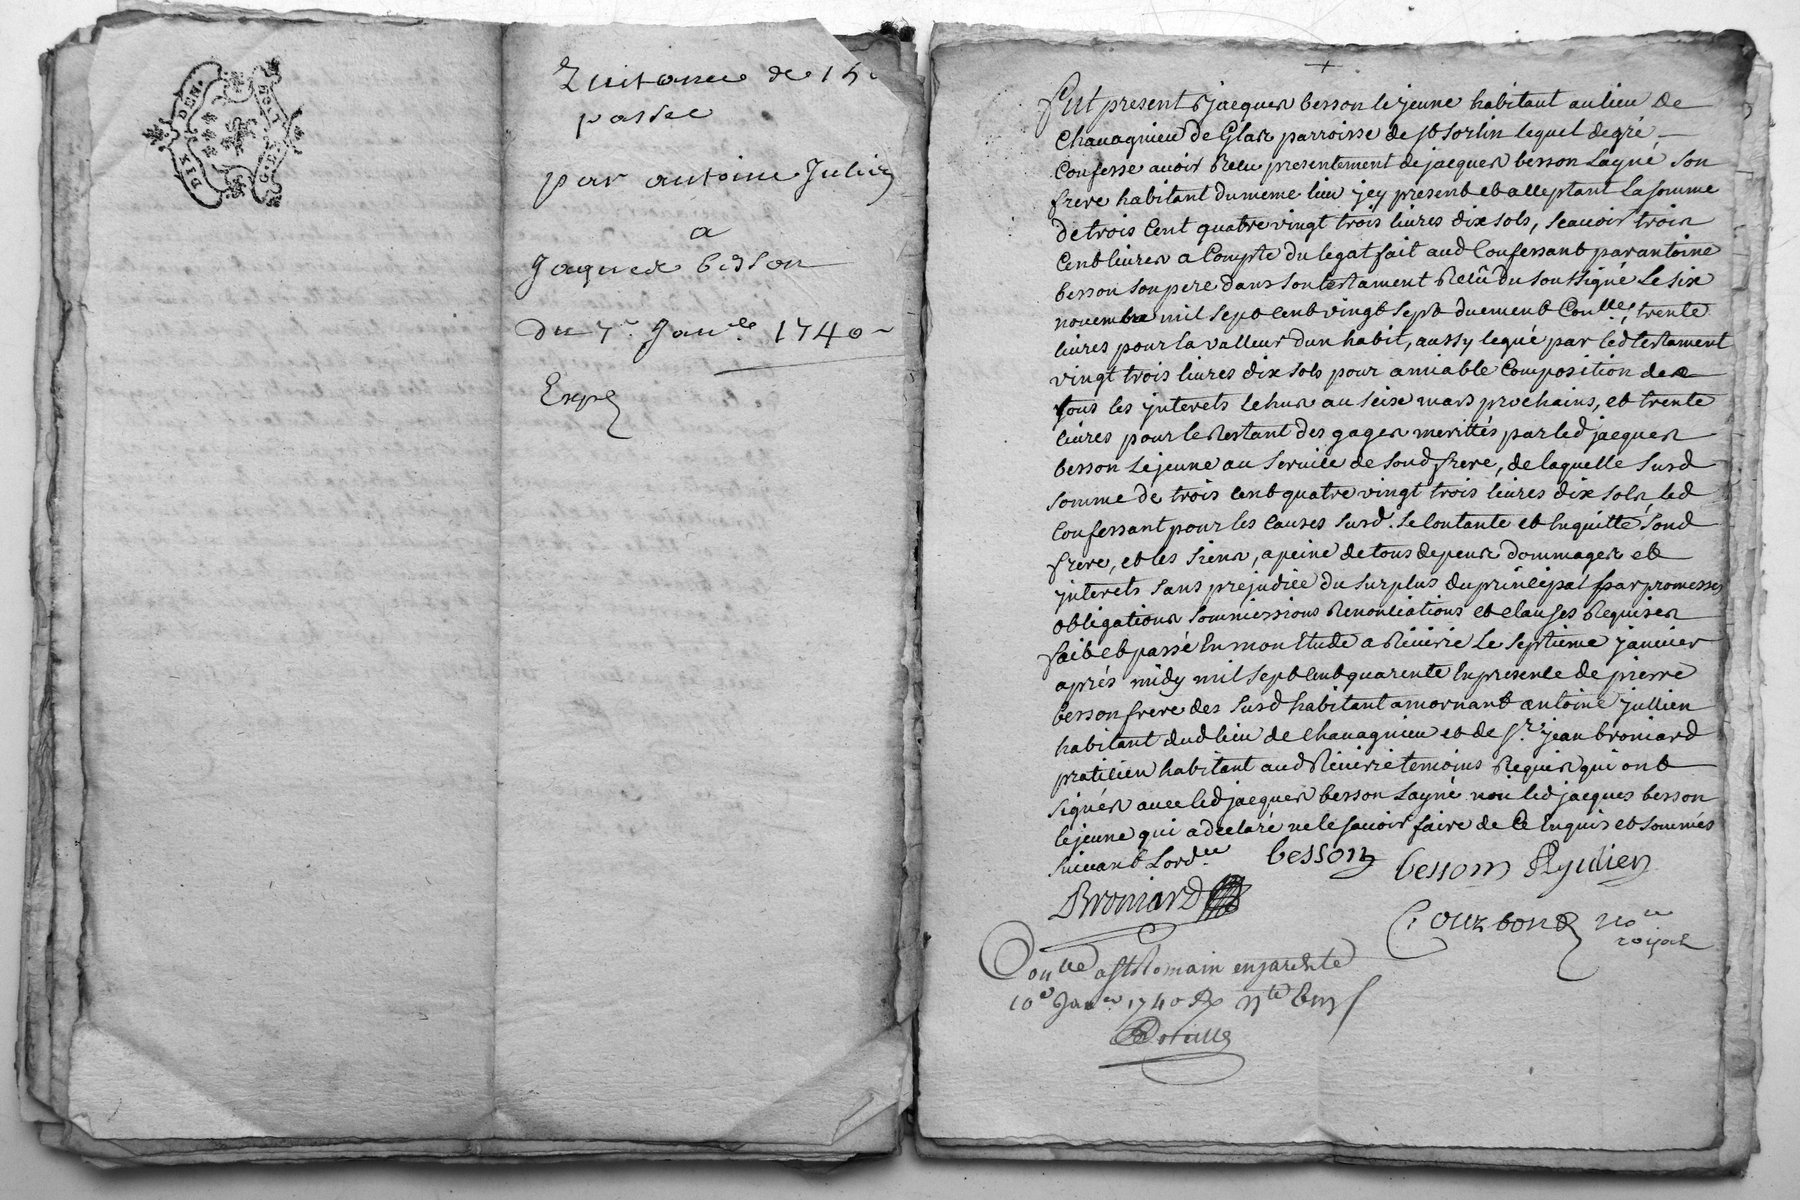 Quitance de 15
passée
par antoine Julien
a
Jaques besson
du 7e Janer 1740
Expé
fut present jacques besson le jeune habitant au lieu de
Chauagnieu de Glas parroisse de st sorlin lequel de gré
Confesse auoir Receu presentement de jacques besson Layné son
frere habitant du meme lieu jcy present et acceptant La somme
de trois Cent quatre vingt trois liures dix sols, scauoir trois
Cent liures a Compte du legat fait aud Confessant par antoine
besson son pere dans son testament Reçû du soussigné Le six
nouembre mil sept Cent vingt sept duement Conlle, trente
liures pour la valleur dun habit, aussy legué par led testament
vingt trois liures dix sols pour amiable Composition de
tous les jnterets Echus au seize mars prochains, et trente
liures pour le Restant des gages merittés par led jacques
besson Lejeune au seruice de sond frere, de laquelle susd
somme de trois Cent quatre vingt trois liures dix sols, led
Confessant pour les Causes susd. se Contante et Enquitte sond
frere, et les siens, a peine de tous depens dommages et
jnterets sans prejudice du surplus du principal par promesses
obligations soumissions Renonciations et clauses Requises
fait et passé En mon Etude a Riuirie Le septieme januier
aprés midy mil sept Cent quarente En presence de pierre
besson frere des susd habitant a mornant antoine jullien
habitant dud lieu de Chauagnieu et de sr. jean broniard
praticien habitant aud Riuirie temoins Requis qui ont
signés auec led jacques besson Layné non led jacques besson
lejeune qui a declaré ne le sauoir faire de Ce Enquis et sommés
suiuant Lordce
besson besson Ajulien
Broniard
Courbon no
roijal
Conlle a st Romain en jareste
10e Janer 1740